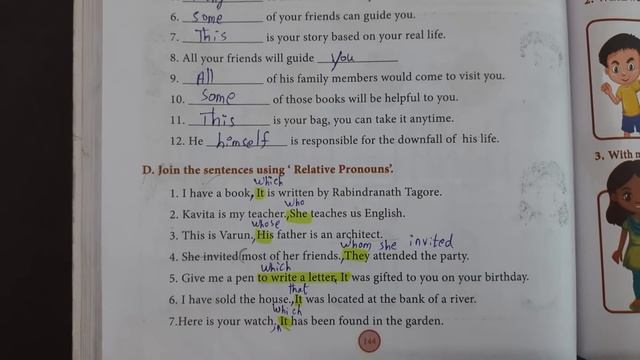 6. Some of your friends can guide you.
7. This is your story based on your real life.
8. All your friends will guide you
9. All of his family members would come to visit you.
10. Some of those books will be helpful to you.
11. This is your bag, you can take it anytime.
12. He himself is responsible for the downfall of his life.
D. Join the sentences using ' Relative Pronouns'.
which
1. I have a book, It is written by Rabindranath Tagore.
who
2. Kavita is my teacher., She teaches us English.
whose
3. This is Varun., His father is an architect.
whom she invited
4. She invited (most of her friends., They attended the party.
which
5. Give me a pen to write a letter, It was gifted to you on your birthday.
that
6. I have sold the house., It was located at the bank of a river.
which
7.Here is your watch, It has been found in the garden.
144
3. With